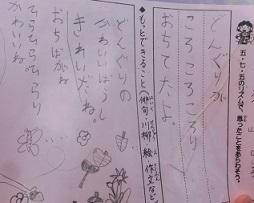 五・七・五のリズムで、思ったことをあらわそう。
どんぐりが
ころころころり
おちてたよ。
◆もっとできるこること(俳句・川柳・絵・作文など)
どんぐりの
かわいいぼうし
きれいだね。
おちばがね
ひらひらひらり
かわいいね